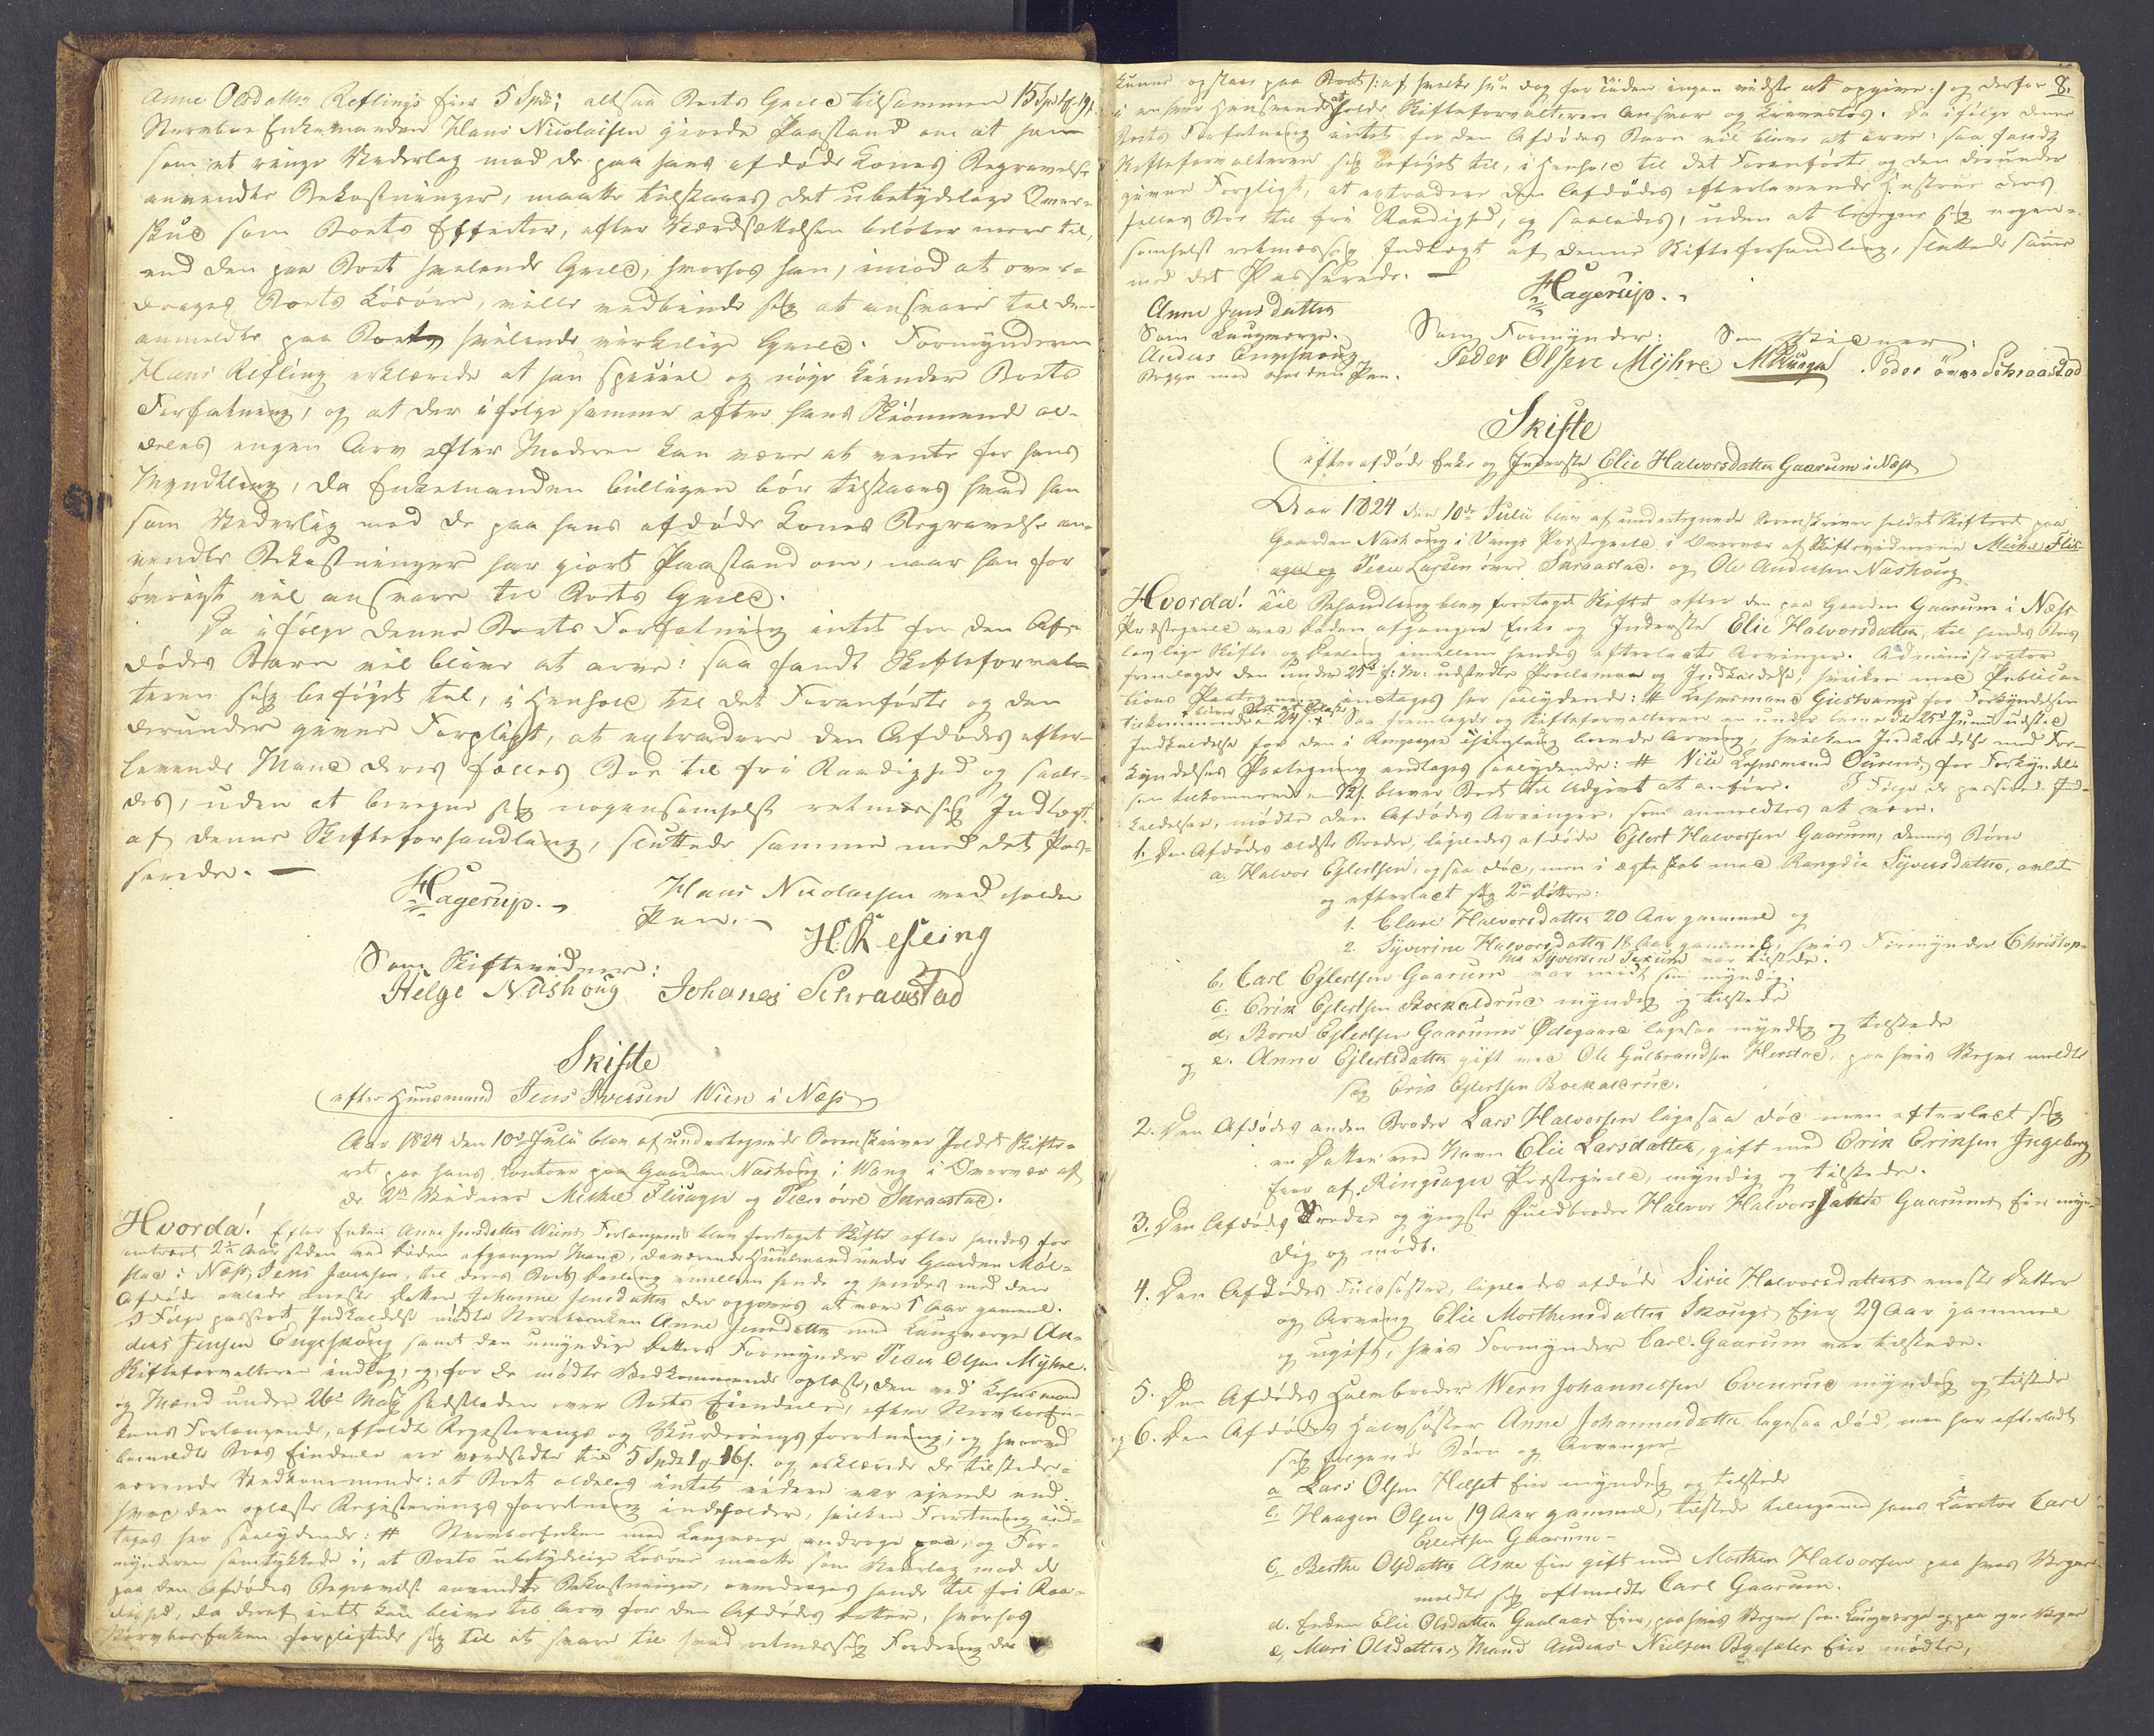 Anne Olsdatter Reflings Eier 5 Spd; altsaa Boets Gield tilsammen 15 Spd
Stervboe Enkemanden Hans Nicolaisen giorde Paastand om at ham
som et ringe Vederlag mod de paa hans afdøde Kones Begravelse
anvendte Bekostninger, maatte tilstaaes det ubetydelige Over-
skud som Boets Effecter, efter Værdsættelsen beløber mere til,
end den paa Boet hvilende Gield, hvorhos han, imod at over-
drages Boets Løsøre, ville vedbinde sig at ansvare til den
anmeldte paa Boet hvilende virkelige Gield. Formynderen
Hans Refling erklærede at han speciel og nøye kiender Boets
Forfatning, og at der ifølge samme efter hans Skiønnende al-
deles ingen Arv efter Moderen kan være at vente for hans
Myndtling, da Enkemanden billigen bør tilstaaes hvad han
som Vederlag mod de paa hans afdøde Kones Begravelse an-
vendte Bekostninger har giort Paastand om, naar han for
øvrigt vil ansvare til Boets Gield.
Da ifølge denne Boets Forfatning intet for den Af-
dødes Barn vil blive at arve: saa fandt Skifteforval-
teren sig beføyet til, i Henhold til det Foranførte og den
derunder givne Forpligt, at extradere den Afdødes efter-
levende Mand deres fælles Boe til fri Raadighed og saale-
des, uden at beregne sig nogensomhelst retmæssig Indtægt
af denne Skifteforhandling, sluttede samme med det Pas-
serede. —
Hagerup. Hans Nicolaisen med holden
Pen. —
H. Refling
Som Skiftevidner:
Helge Nashoug Johanes Schraastad
Skifte
efter Huusmand Jens Iversen Wien i Næs
Aar 1824 den 10de Julii blev af undertegnede Sorenskriver holdet Skifte-
ret paa hans Contoir paa Gaarden Nashoug i Wang i Overvær af
de 2de Vidner Mikkel Flisager og Peer øvre Skraastad.
Hvorda! Efter Enken Anne Jensdatter Wiens Forlangende blev foretaget Skifte efter hendes for
omtrent 2de Aar siden ved Døden afgangne Mand, værende Huusmand under Gaarden Møl-
stad i Næs, Jens Iversen, til deres Boes Deeling imellem hende og hendes med den
Afdøde avlede eneste Datter Johanne Jensdatter der opgaves at være 1 Aar gammel.
I Følge passeret Indkaldelse mødte Stervboenken Anne Jensdatter med Laugværge An-
ders Jensen Engeskoug samt den umyndige Datters Formynder Peder Olsen Myhre.
Skifteforvalteren indtog, og for de mødte Vedkommende oplæste, den ved Lehnsmand
og Mænd under 26de May sidstleden over Boets Eiendeele, efter Stervboen-
kens Forlangende, afholdte Registrerings og Vurderingsforretning; og hvorved
bemeldte Boes Eiendeele ere værdsadte til 5 Spd 1 ort 16 s. og erklærede de tilstede-
værende Vedkommende: at Boet aldeles intet videre var eiende end
hvad den oplæste Registreringsforretning indeholder, hvilken Forretning ind-
tages her saalydende: # Stervboenken med Laugværge androge paa, og For-
mynderen samtykkede i, at Boets ubetydelige Løsøre maatte som Vederlag mod de
paa den Afdødes Begravelse anvendte Bekostninger, overdrages hende til fri Raa-
dighed, da deraf intet kan blive til Arv for den Afdødes Datter, hvorhos
Stervboenken forpligtede sig til at svare til hvad retmæssig Fordring der
kunne opstaae paa Boet /: af hvilke hun dog for Tiden ingen vidste at opgive :/ og derfor 8.
i en hver Henseende at holde Skifteforvalteren Ansvar og Kravesløs. Da ifølge denne
Boets Forfatning intet for den Afdødes Barn vil blive at arve: saa fandt
Skifteforvalteren sig beføyet til, i Henhold til det Foranførte og den derunder
givne Forpligt, at extradere den Afdødes efterlevende Hustrue deres
fælles Boe til fri Raadighed, og saaledes, uden at beregne sig nogen-
somhelst retmæssig Indtægt af denne Skifteforhandling, sluttede samme
med det Passerede. —
Hagerup.
Anne Jensdatter
Som Laugværge. Som Formynder: Som Vidner:
Anders Engeskoug Peder Olsen Myhre M. Flisager. Peder øvre Schraastad
Begge med holden Pen.
Skifte
efter afdøde Enke og Inderste Elie Halvorsdatter Gaarum i Næs
Aar 1824 den 10de Julii blev af undertegnede Sorenskriver holdet Skifteret paa
Gaarden Nashoug i Vangs Præstegield i Overvær af Skiftevidnerne Mikkel Flis-
ager og Peder Larsen øvre Skraastad. og Ole Andersen Nashoug
Hvorda! Til Behandling blev foretaget Skiftet efter den paa Gaarden Gaarum i Næs
Præstegield ved Døden afgangne Enke og Inderste Elie Halvorsdatter, til hendes Boes
lovlige Skifte og Deeling imellem hendes efterladte Arvinger. Administrator
fremlagde den under 25de f: M: udstedte Proclama og Indkaldelse, hvilken med Publica-
tions Paategning indtages her saalydende: # Lehnsmand Gustvangs for Forkyndelsen
tilkommende 24 s. Saa fremlagde og Skifteforvalteren en under samme 25de Junii udsted
Indkaldelse for den i Ringsager Thinglaug boende Arving, hvilken Indkaldelse med For-
kyndelses Paategning indtages saalydende: # Vice Lehnsmand Ourens for Forkyndel-
sen tilkommende s. bliver Boet til Udgivt at anføre. I Følge de passerede Ind-
kaldelser, mødte den Afdødes Arvinger, som anmeldtes at være.
1. Den Afdødes ældste Broder, ligeledes afdøde Ejlert Halvorsen Gaarum, dennes Børn
a. Halvor Ejlertsen, ogsaa død, men i Ægteskab med Rangdie Syversdatter, avlet
og efterladt sig 2de Døttre:
1. Clare Halvorsdatter 20 Aar gammel og
2. Syverine Halvorsdatter 18 Aar gammel, hvis Formynder Christop-
her Syversen Sexum var tilstede.
b. Carl Ejlertsen Gaarum var mødt som myndig.
c. Erik Ejlertsen Bockaldrud myndig og tilstede
d. Borre Ejlertsen Gaarums Ødegaard ligesaa myndig og tilstede
og e. Anne Ejlertsdatter gift med Ole Gulbrandsen Herstad, paa hvis Vegne meldte
sig Erik Ejlertsen Bockaldrud.
2. Den Afdødes anden Broder Lars Halvorsen ligesaa død men efterladt sig
en Datter ved Navn Elie Larsdatter, gift med Erik Eriksen Ingeberg
Eier af Ringsager Præstegield, myndig og tilstede.
3. Den Afdødes Tredie og yngste Fuldbroder Halvor Halvorsen Gaarums Eier myn-
dig og mødt.
4. Den Afdødes Fuldsøster, ligeledes afdøde Sirie Halvorsdatters eneste Datter
og Arving Elie Morthensdatter Skougs Eier 29 Aar gammel
og ugift, hvis Formynder Carl Gaarum var tilstede.
5. Den Afdødes Halvbroder Wern Johannessen Evenrud myndig og tilstede
og 6. Den Afdødes Halvsøster Anne Johannesdatter ligesaa død, men har efterladt
sig følgende Børn og Arvinger
a. Lars Olsen Helset Eier myndig og tilstede
b. Haagen Olsen 19 Aar gammel, tilstede tilligemed hans Curator Carl
Ejlertsen Gaarum -
c. Berthe Olsdatter Aske Eier gift med Morthen Halvorsen paa hvis Vegne
meldte sig oftmeldte Carl Gaarum.
d. Enken Elie Olsdatter Gaalaas Eier, paa hvis Vegne som Laugværge og paa egne Vegne
e. Mari Olsdatters Mand Anders Nielsen Bryhsæter Eier mødte,